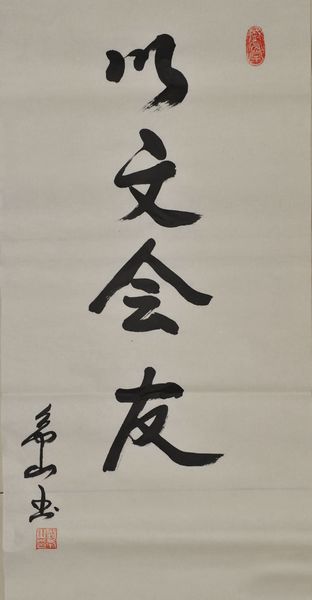 以文会友
希山书